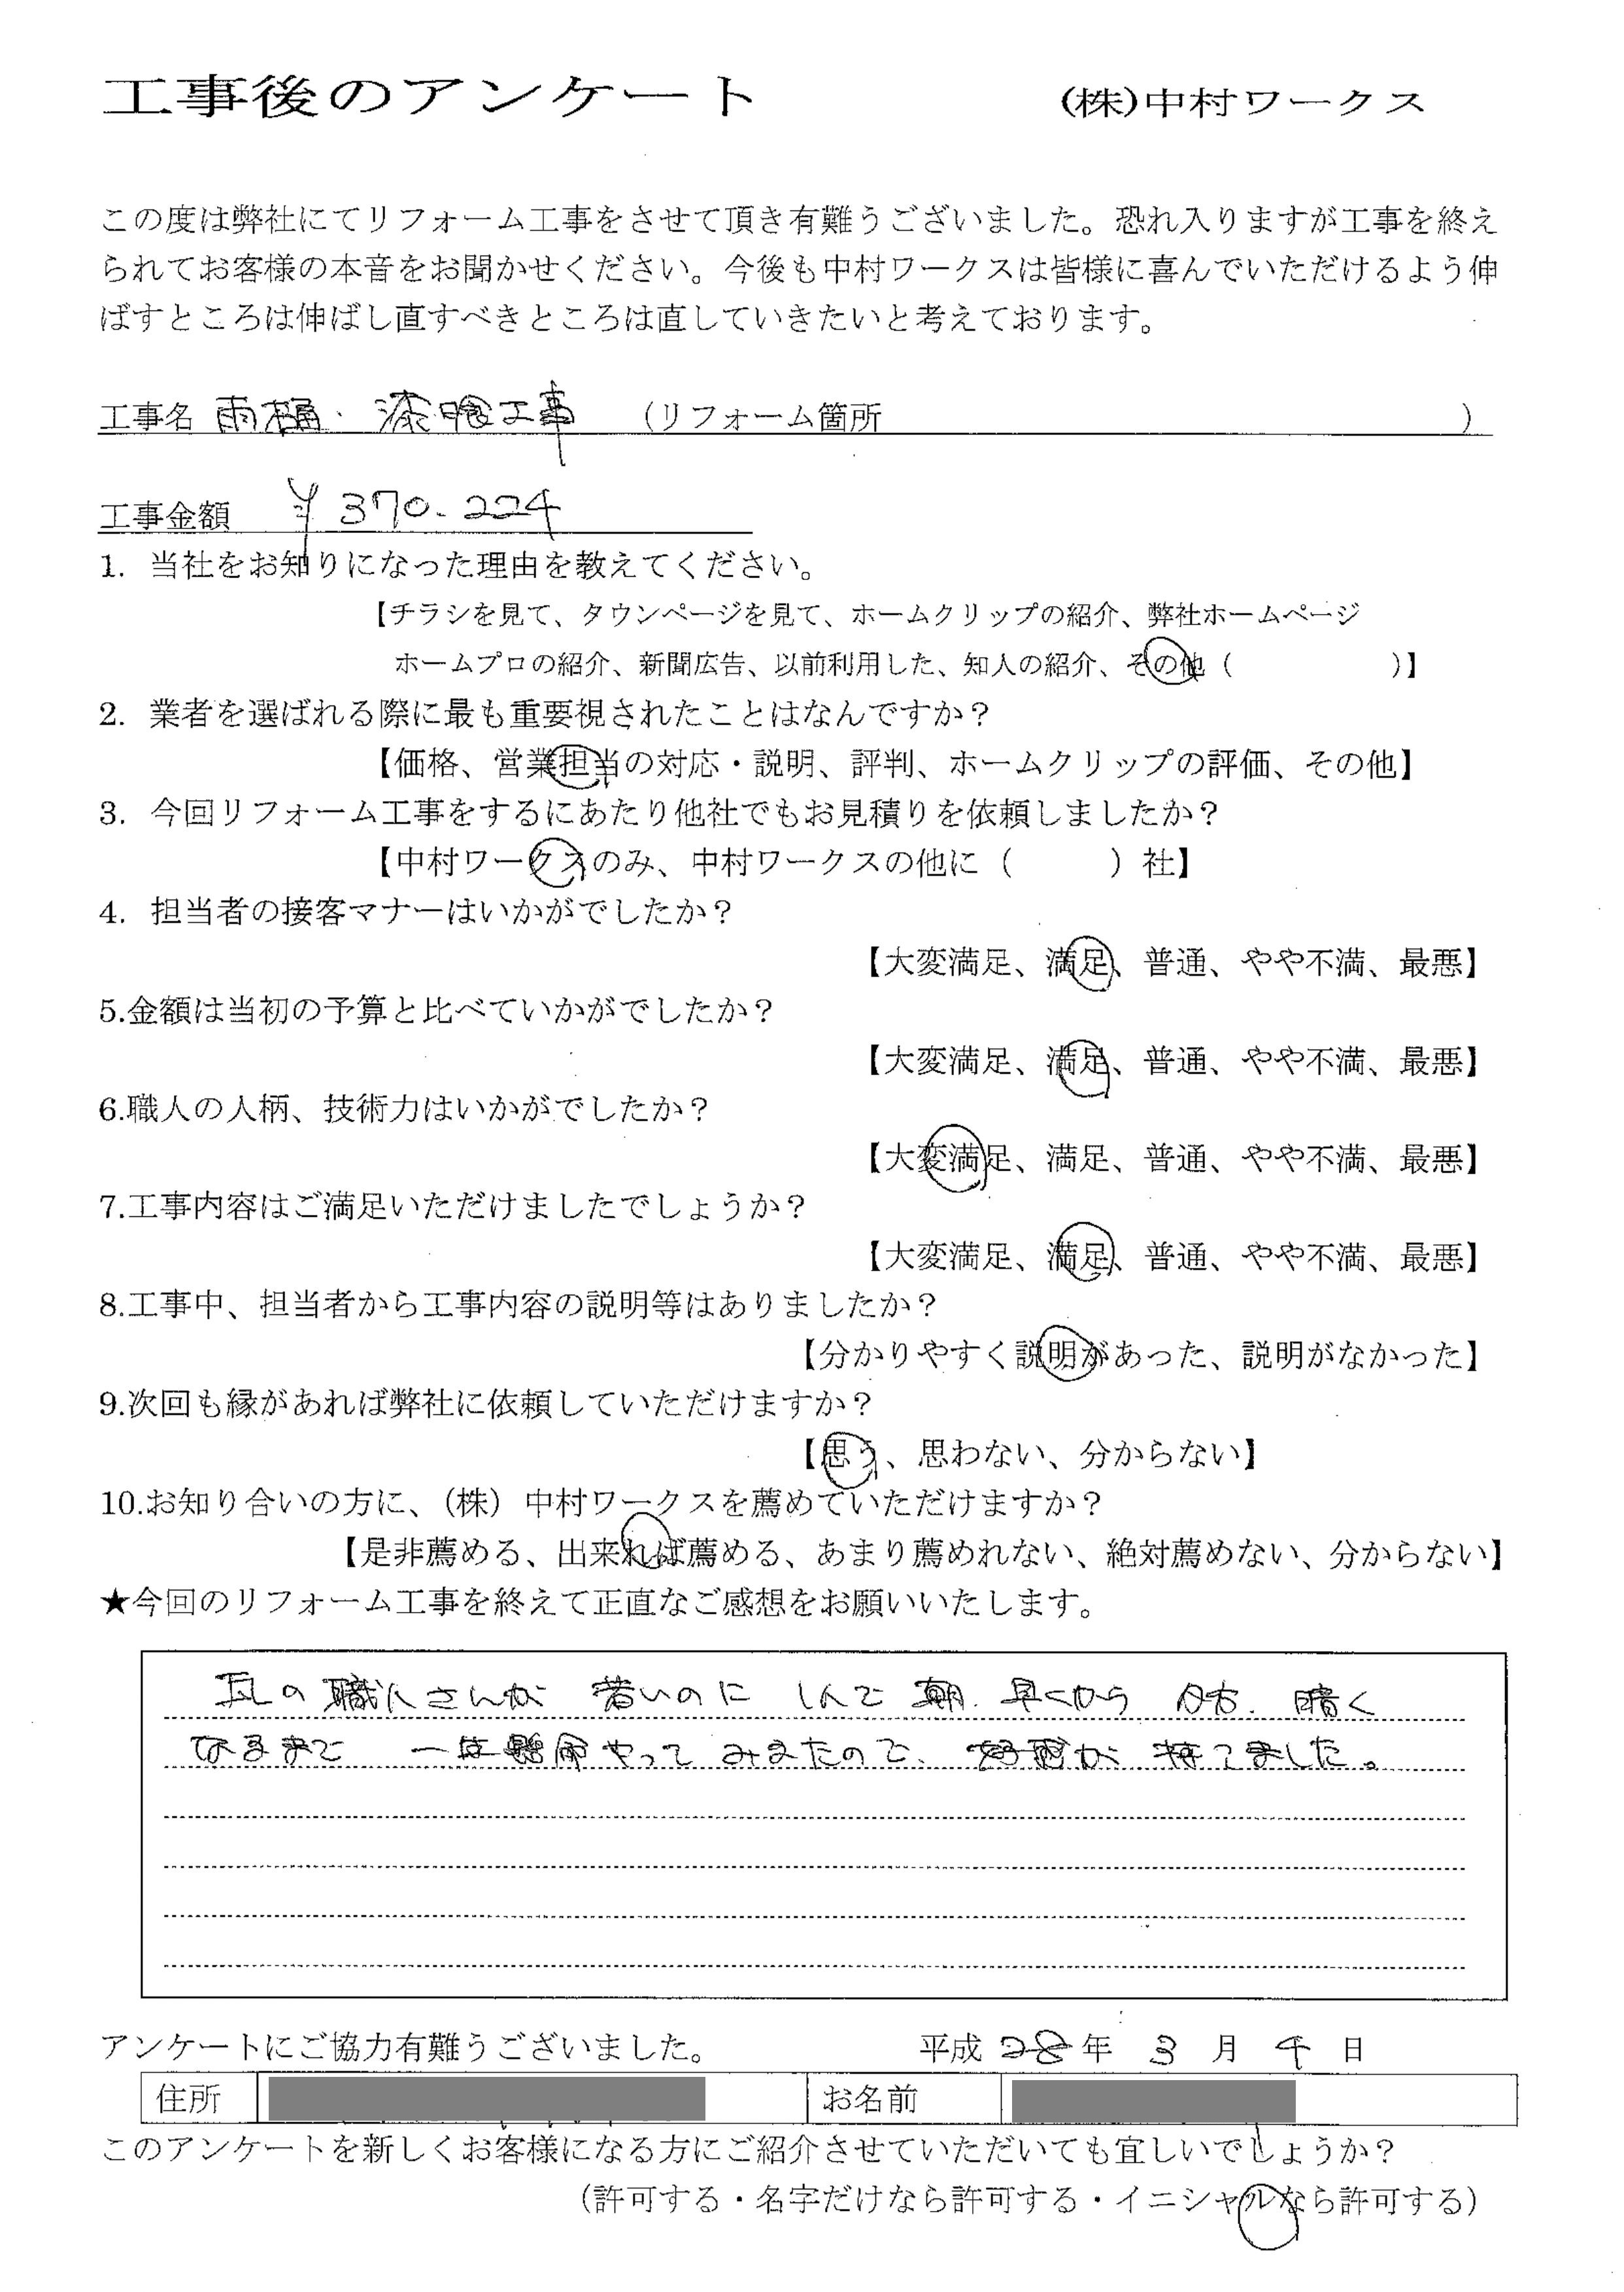 工事後のアンケート　(株)中村ワークス
この度は弊社にてリフォーム工事をさせて頂き有難うございました。恐れ入りますが工事を終え
られてお客様の本音をお聞かせください。今後も中村ワークスは皆様に喜んでいただけるよう伸
ばすところは伸ばし直すべきところは直していきたいと考えております。
工事名 雨樋・漆喰工事　（リフォーム箇所　　　）
工事金額　￥370.224
1. 当社をお知りになった理由を教えてください。
【チラシを見て、タウンページを見て、ホームクリップの紹介、弊社ホームページ
ホームプロの紹介、新聞広告、以前利用した、知人の紹介、その他（　　　）】
2. 業者を選ばれる際に最も重要視されたことはなんですか？
【価格、営業担当の対応・説明、評判、ホームクリップの評価、その他】
3. 今回リフォーム工事をするにあたり他社でもお見積りを依頼しましたか？
【中村ワークスのみ、中村ワークスの他に（　　　）社】
4. 担当者の接客マナーはいかがでしたか？
【大変満足、満足、普通、やや不満、最悪】
5.金額は当初の予算と比べていかがでしたか？
【大変満足、満足、普通、やや不満、最悪】
6.職人の人柄、技術力はいかがでしたか？
【大変満足、満足、普通、やや不満、最悪】
7.工事内容はご満足いただけましたでしょうか？
【大変満足、満足、普通、やや不満、最悪】
8.工事中、担当者から工事内容の説明等はありましたか？
【分かりやすく説明があった、説明がなかった】
9.次回も縁があれば弊社に依頼していただけますか？
【思う、思わない、分からない】
10.お知り合いの方に、（株）中村ワークスを薦めていただけますか？
【是非薦める、出来れば薦める、あまり薦めれない、絶対薦めない、分からない】
★今回のリフォーム工事を終えて正直なご感想をお願いいたします。
瓦の職人さんが 若いのに 朝.早くから 暗く
なるまで 一生懸命やって みえたので、 好感が 持てました。
アンケートにご協力有難うございました。　平成 28 年 3 月 4 日
住所　お名前
このアンケートを新しくお客様になる方にご紹介させていただいても宜しいでしょうか？
（許可する・名字だけなら許可する・イニシャルなら許可する）